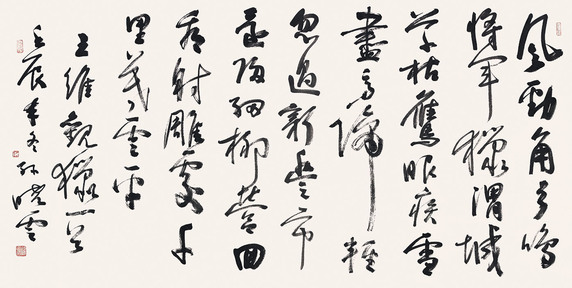 風勁角弓鳴
將軍獵渭城
草枯鷹眼疾雪
盡馬蹄輕
忽過新豐市
還歸細柳營回
看射雕處千
里暮雲平
王維觀獵一首
壬辰 孫曉雲